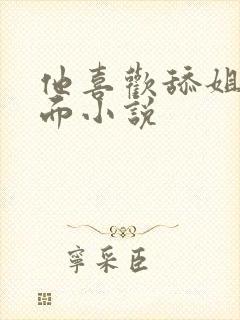 他喜歡舔姐
而小説
寧采臣